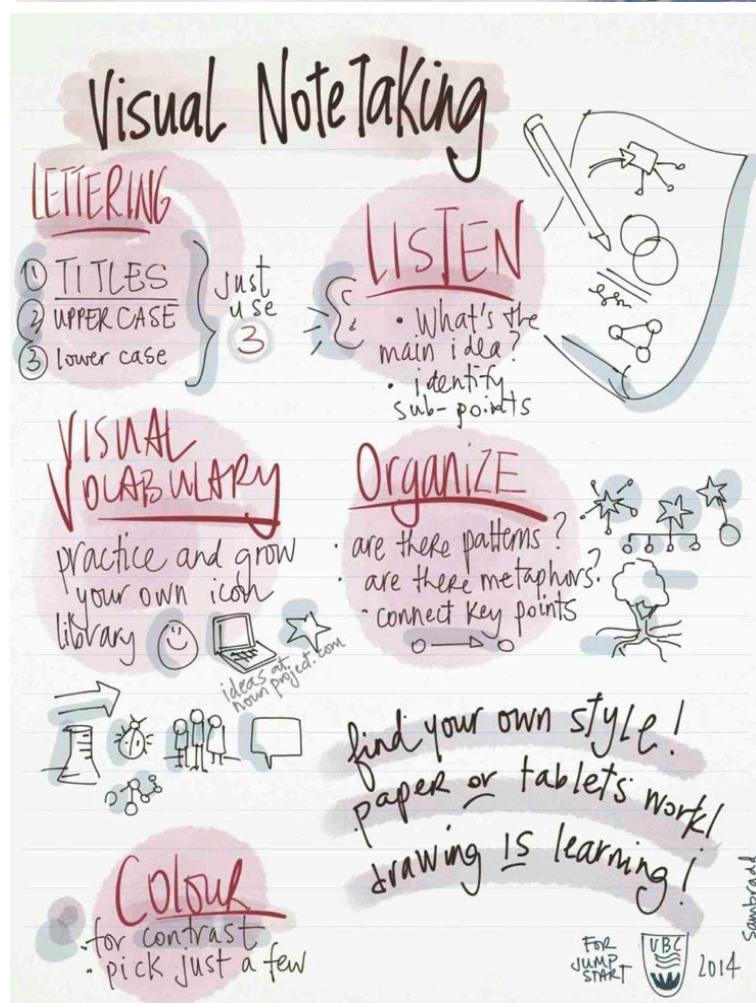 Visual NoteTaking
LETTERING
① TITLES
② UPPER CASE
③ lower case
just
use
3
LISTEN
• What's the
main idea?
• identify
sub-points
VISUAL
VOCABULARY
practice and grow
your own icon
library
ideas at
noun project.com
OrganizE
• are there patterns?
• are there metaphors?
• connect key points
find your own style!
paper or tablets work!
drawing IS learning!
Colour
• for contrast
• pick just a few
FOR
JUMP
START
UBC
2014
sambradd